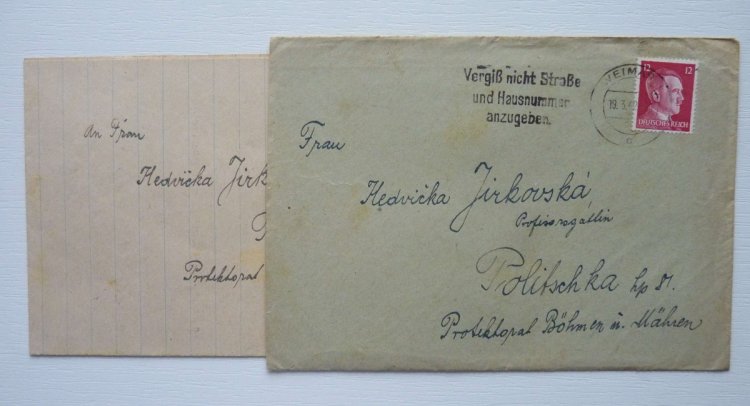 An Frau
Hedvička Jirk
P
Protektorat
Vergiß nicht Straße
und Hausnummer
anzugeben.
WEIMA
19.3.4
c
12 12
DEUTSCHES REICH
Frau
Hedvička Jirkovská
Politschka hp 81.
Protektorat Böhmen u. Mähren